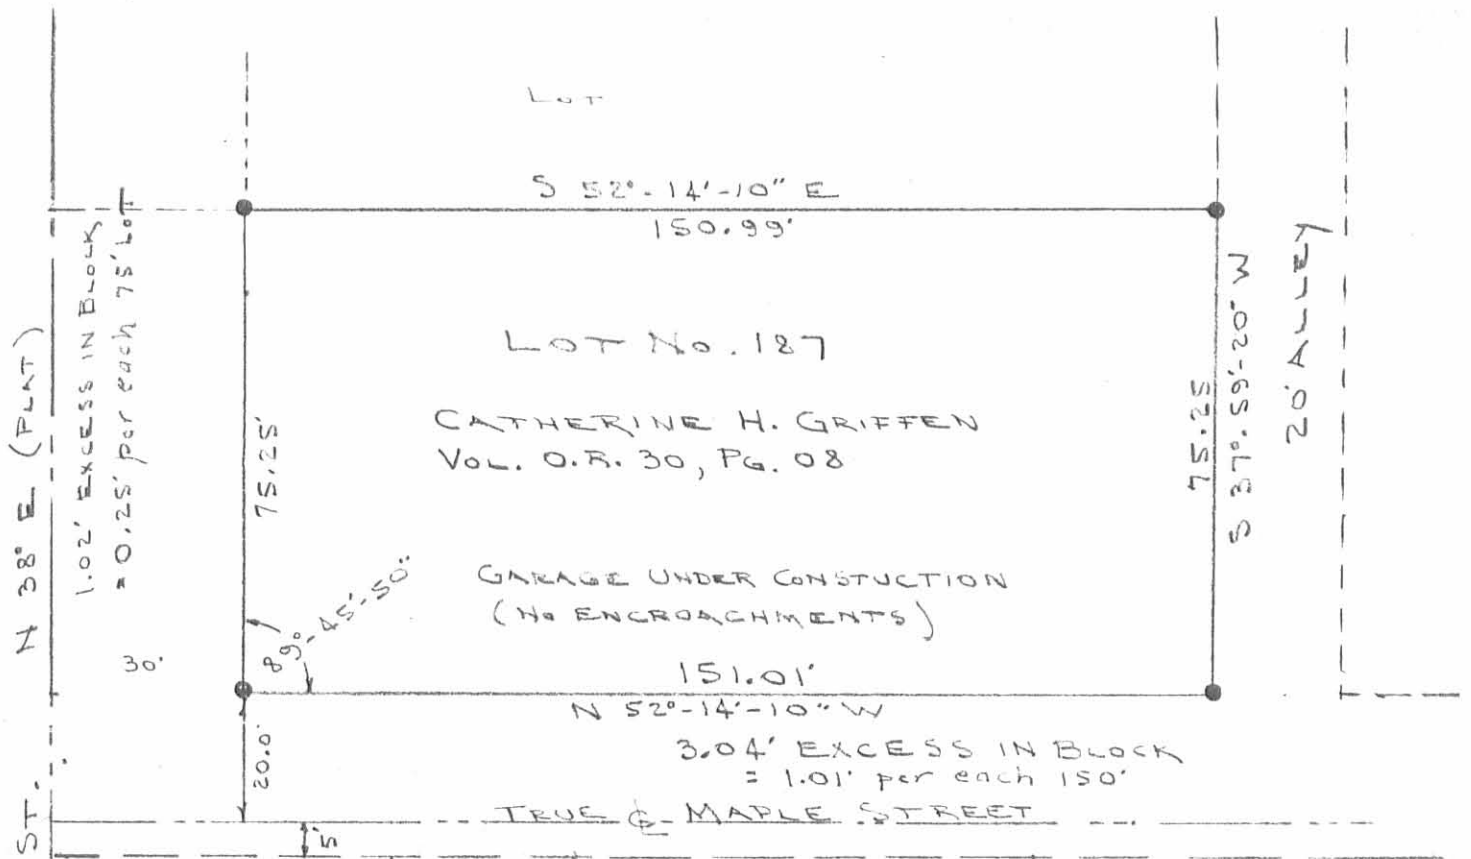 LOT
S 52°-14'-10" E
150.99'
N 38° E (PLAT)
1.02' EXCESS IN BLOCK
= 0.25' per each 75' LOT
75.25'
LOT No. 187
CATHERINE H. GRIFFEN
VOL. O.R. 30, PG. 08
75.25
S 37°-59'-20" W
20' ALLEY
89°-45'-50"
GARAGE UNDER CONSTUCTION
(NO ENCROACHMENTS)
30'
151.01'
N 52°-14'-10" W
20.0'
3.04' EXCESS IN BLOCK
= 1.01' per each 150'
ST.
TRUE ℄ MAPLE STREET
5'